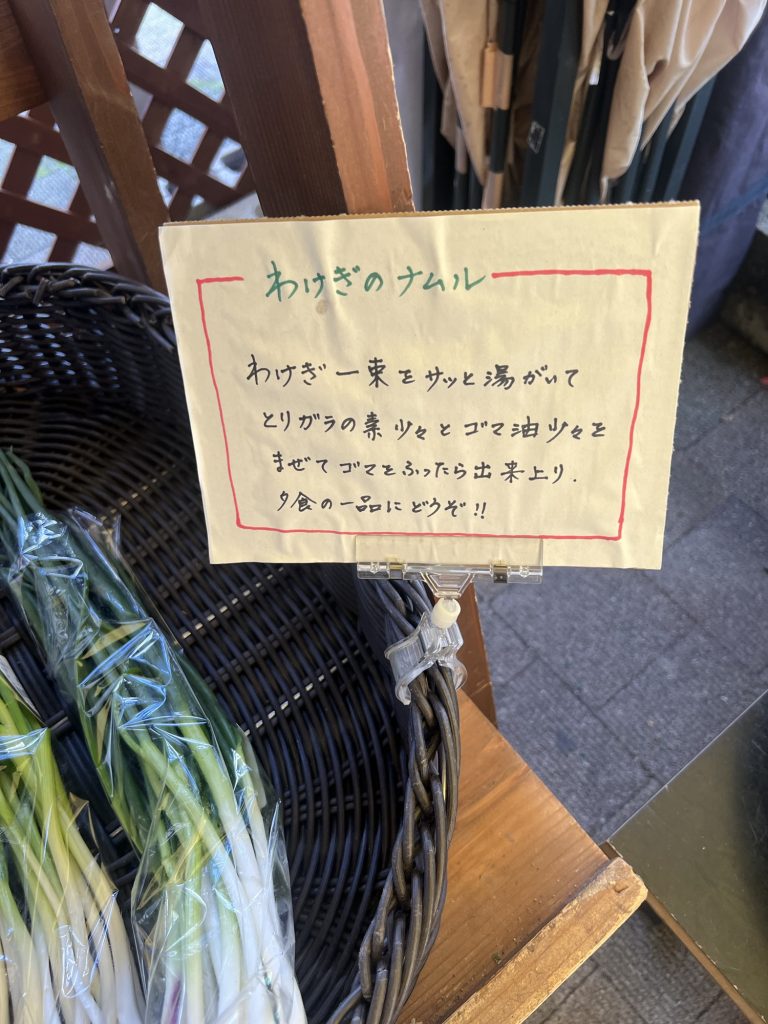 わけぎのナムル
わけぎ一束をサッと湯がいて
とりガラの素少々とゴマ油少々を
まぜてゴマをふったら出来上り.
夕食の一品にどうぞ!!